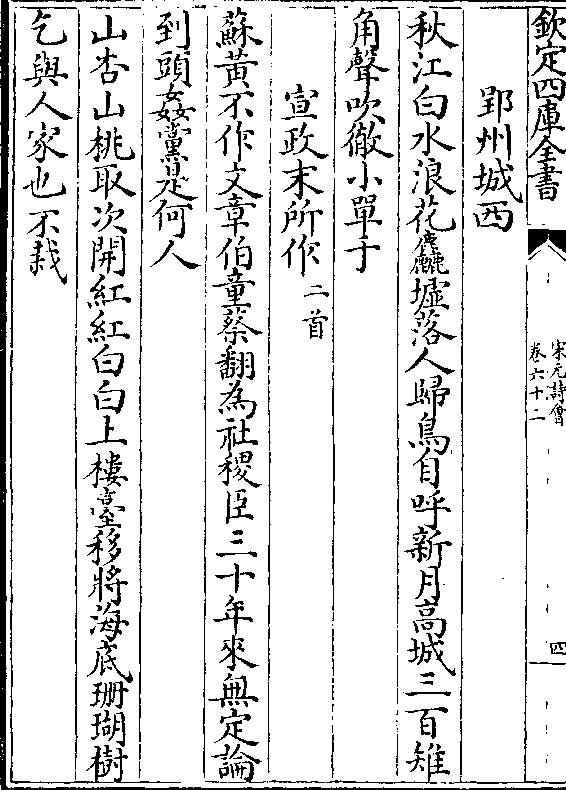 欽定四庫全書
宋元詩會
卷六十二
四
郢州城西
秋江白水浪花麤墟落人歸鳥自呼新月高城三百雉
角聲吹徹小單于
宣政末所作二首
蘇黃不作文章伯童蔡翻為社稷臣三十年來無定論
到頭姦黨是何人
山杏山桃取次開紅紅白白上樓臺移將海底珊瑚樹
乞與人家也不栽